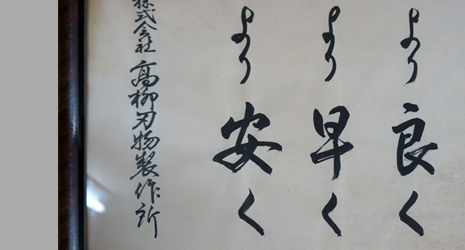 より良く
より早く
より安く
株式会社高柳刃物製作所